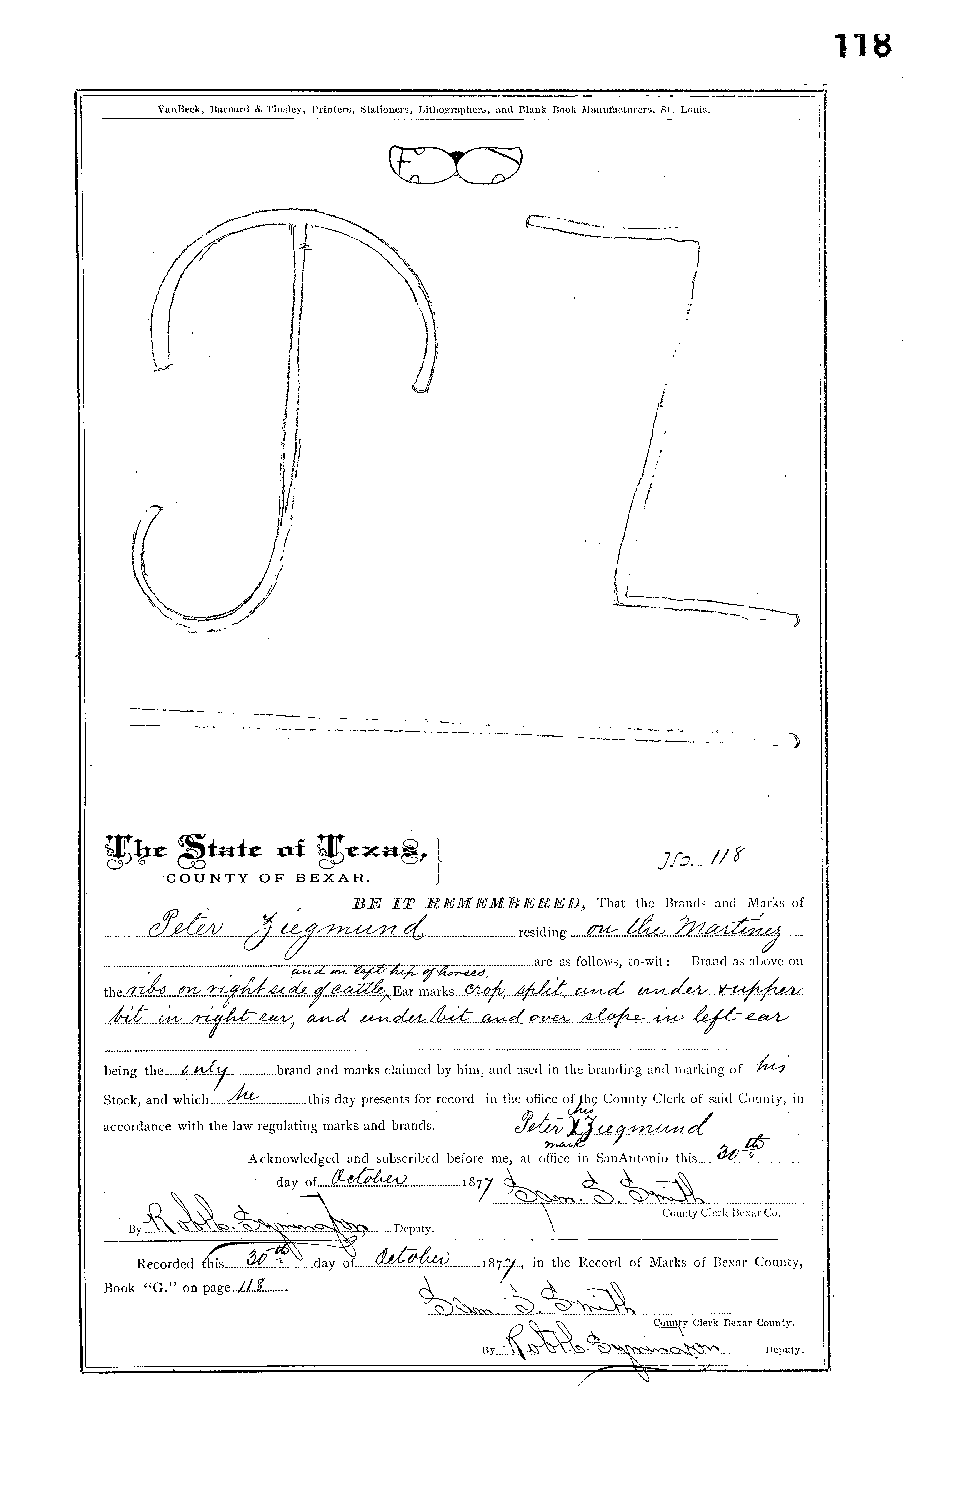 118
VanBeck, Barnard & Tinsley, Printers, Stationers, Lithographers, and Blank Book Manufacturers, St. Louis.
The State of Texas,
COUNTY OF BEXAR.
No. 118
BE IT REMEMBERED, That the Brands and Marks of
Peter Ziegmund residing on the Martinez
are as follows, to-wit: Brand as above on
and on left hip of horses,
the ribs on right side of cattle, Ear marks crop, split and under & upper
bit in right ear, and under bit and over slope in left ear
being the only brand and marks claimed by him, and used in the branding and marking of his
Stock, and which he this day presents for record in the office of the County Clerk of said County, in
accordance with the law regulating marks and brands.
his
Peter X Ziegmund
mark
Acknowledged and subscribed before me, at office in San Antonio this 30th
day of October 1877 Sam. S. Smith
County Clerk Bexar Co.
By Deputy.
Recorded this 30th day of October 1877, in the Record of Marks of Bexar County,
Book "G." on page 118
Sam. S. Smith
County Clerk Bexar County.
By Deputy.